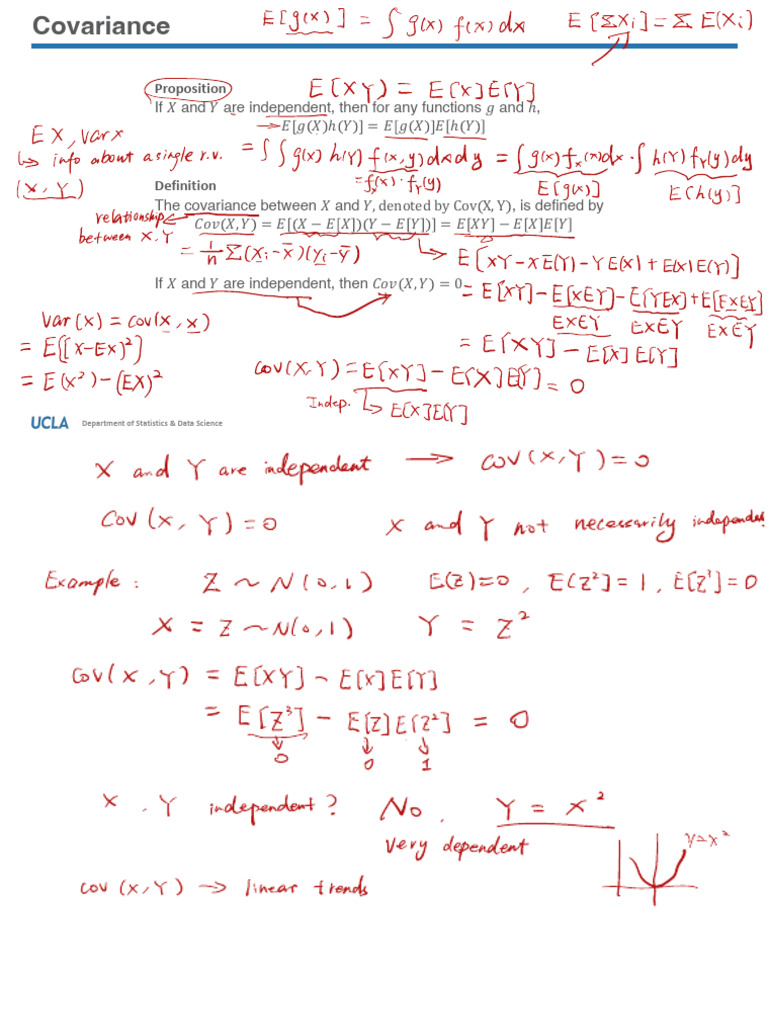 Covariance
E[g(x)] = ∫ g(x) f(x) dx
E[ΣXi] = Σ E(Xi)
Proposition
E[XY] = E[X]E[Y]
If X and Y are independent, then for any functions g and h,
→ E[g(X)h(Y)] = E[g(X)]E[h(Y)]
EX, Var X
↳ info about a single r.v.
(X, Y)
= ∫∫ g(x) h(Y) f(x,y) dx dy = ∫ g(x) fx(x) dx · ∫ h(Y) fY(y) dy
= fx(x) · fY(y)
E[g(x)]
E[h(y)]
Definition
The covariance between X and Y, denoted by Cov(X, Y), is defined by
relationship
between X, Y
Cov(X, Y) = E[(X − E[X])(Y − E[Y])] = E[XY] − E[X]E[Y]
= 1/n Σ(xi − x̄)(yi − ȳ)
↳ E[XY − XE(Y) − YE(X) + E(X)E(Y)]
If X and Y are independent, then Cov(X, Y) = 0
= E[XY] − E[XEY] − E[YEX] + E[EXEY]
EXEY EXEY EXEY
= E[XY] − E[X]E[Y]
Var(x) = Cov(x, x)
= E[(X−EX)²]
= E(X²) − (EX)²
Cov(X,Y) = E[XY] − E[X]E[Y] = 0
Indep. ↳ E[X]E[Y]
UCLA Department of Statistics & Data Science
X and Y are independent → Cov(X,Y) = 0
Cov(X, Y) = 0 X and Y not necessarily independent
Example : Z ~ N(0,1) E(Z)=0 , E(Z²)=1 , E[Z³]=0
X = Z ~ N(0,1) Y = Z²
Cov(X,Y) = E[XY] − E[X]E[Y]
= E[Z³] − E[Z]E[Z²] = 0
↓ ↓ ↓
0 0 1
X , Y independent? No. Y = X²
Very dependent
y=x²
Cov (X,Y) → linear trends